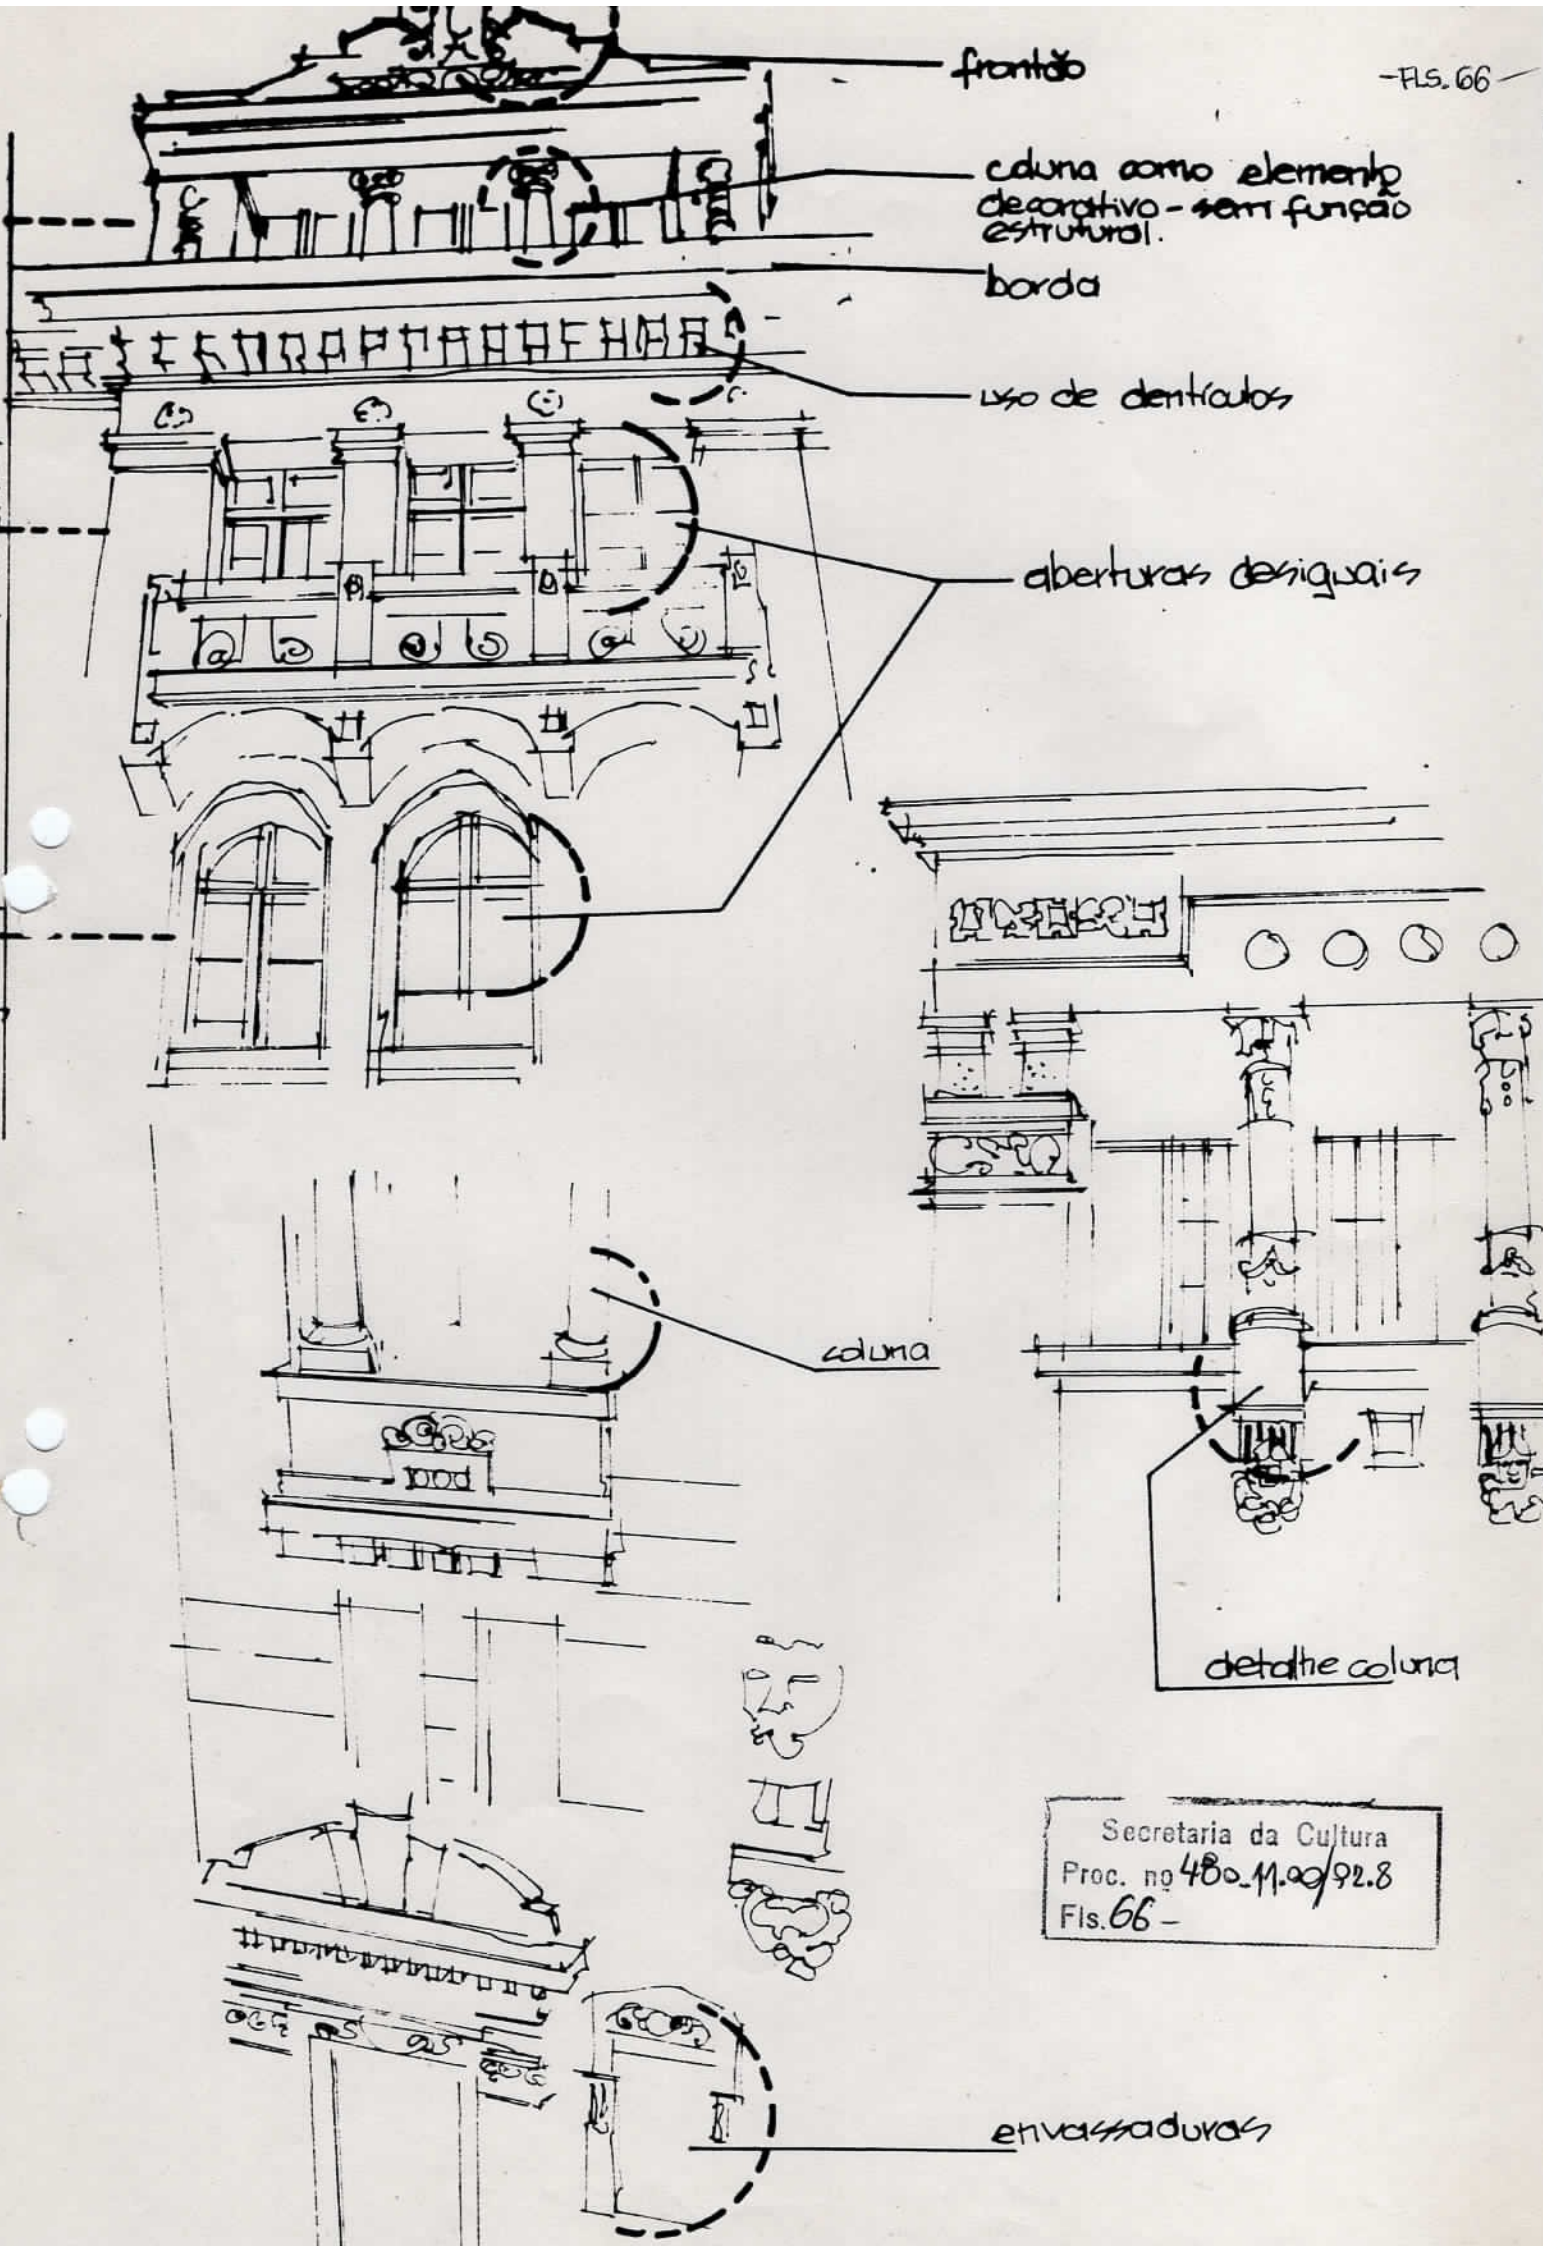 -FLS. 66-
frontão
coluna como elemento
decorativo - sem função
estrutural.
borda
uso de dentículos
aberturas desiguais
coluna
detalhe coluna
Secretaria da Cultura
Proc. nº 480-11.00/92.8
Fls. 66 -
envassaduras